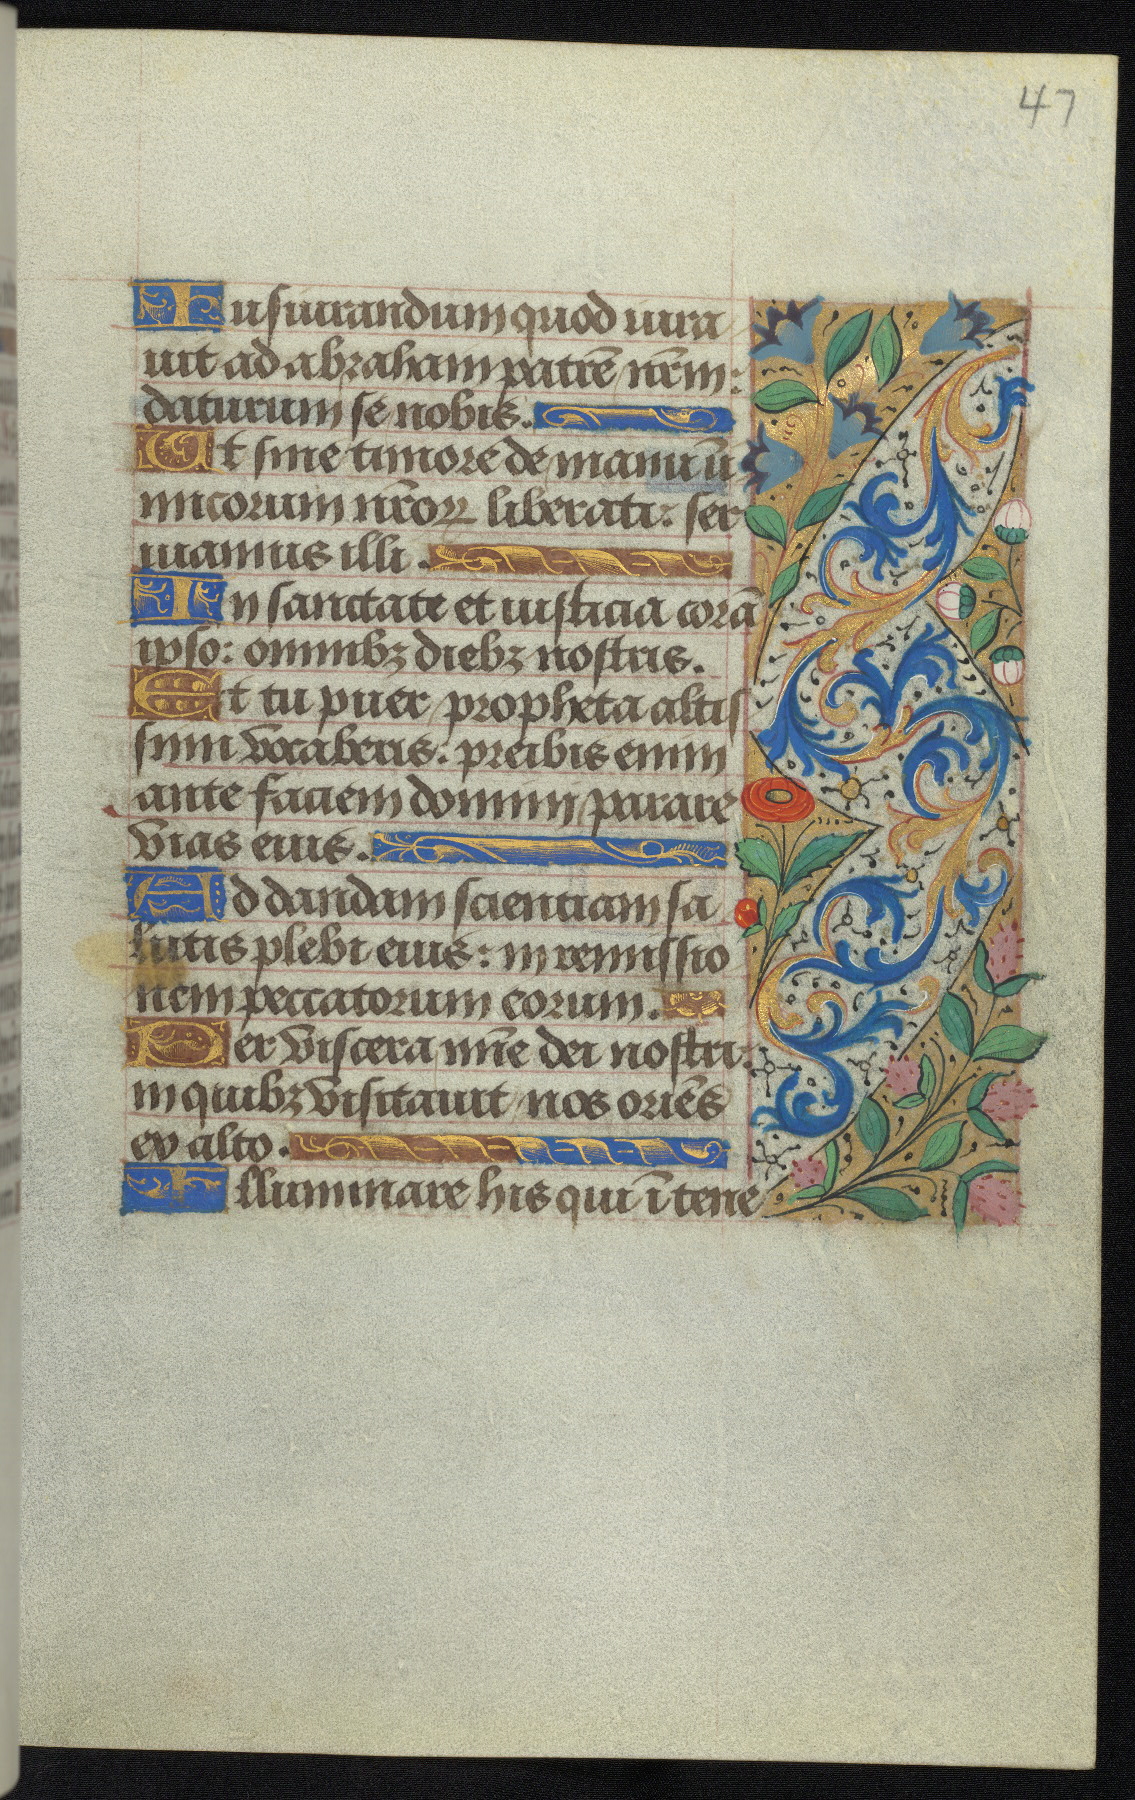 47
Iusiurandum quod iura
uit ad abraham patrē nrm̄:
daturum se nobis.
Ut sine timore de manu ī
imicorum nr̄oꝝ liberati: ser
uiamus illi.
In sanctate et iusticia corā
ipso: omnibꝫ diebꝫ nostris.
Et tu puer propheta altis
simi vocaberis: preibis enim
ante faciem domini parare
vias eius.
Ad dandam scientiam sa
lutis plebi eius: in remissio
nem peccatorum eorum.
Per viscera mīe dei nostri:
in quibꝫ visitauit nos oriēs
ex alto.
Illuminare his qui ī tene